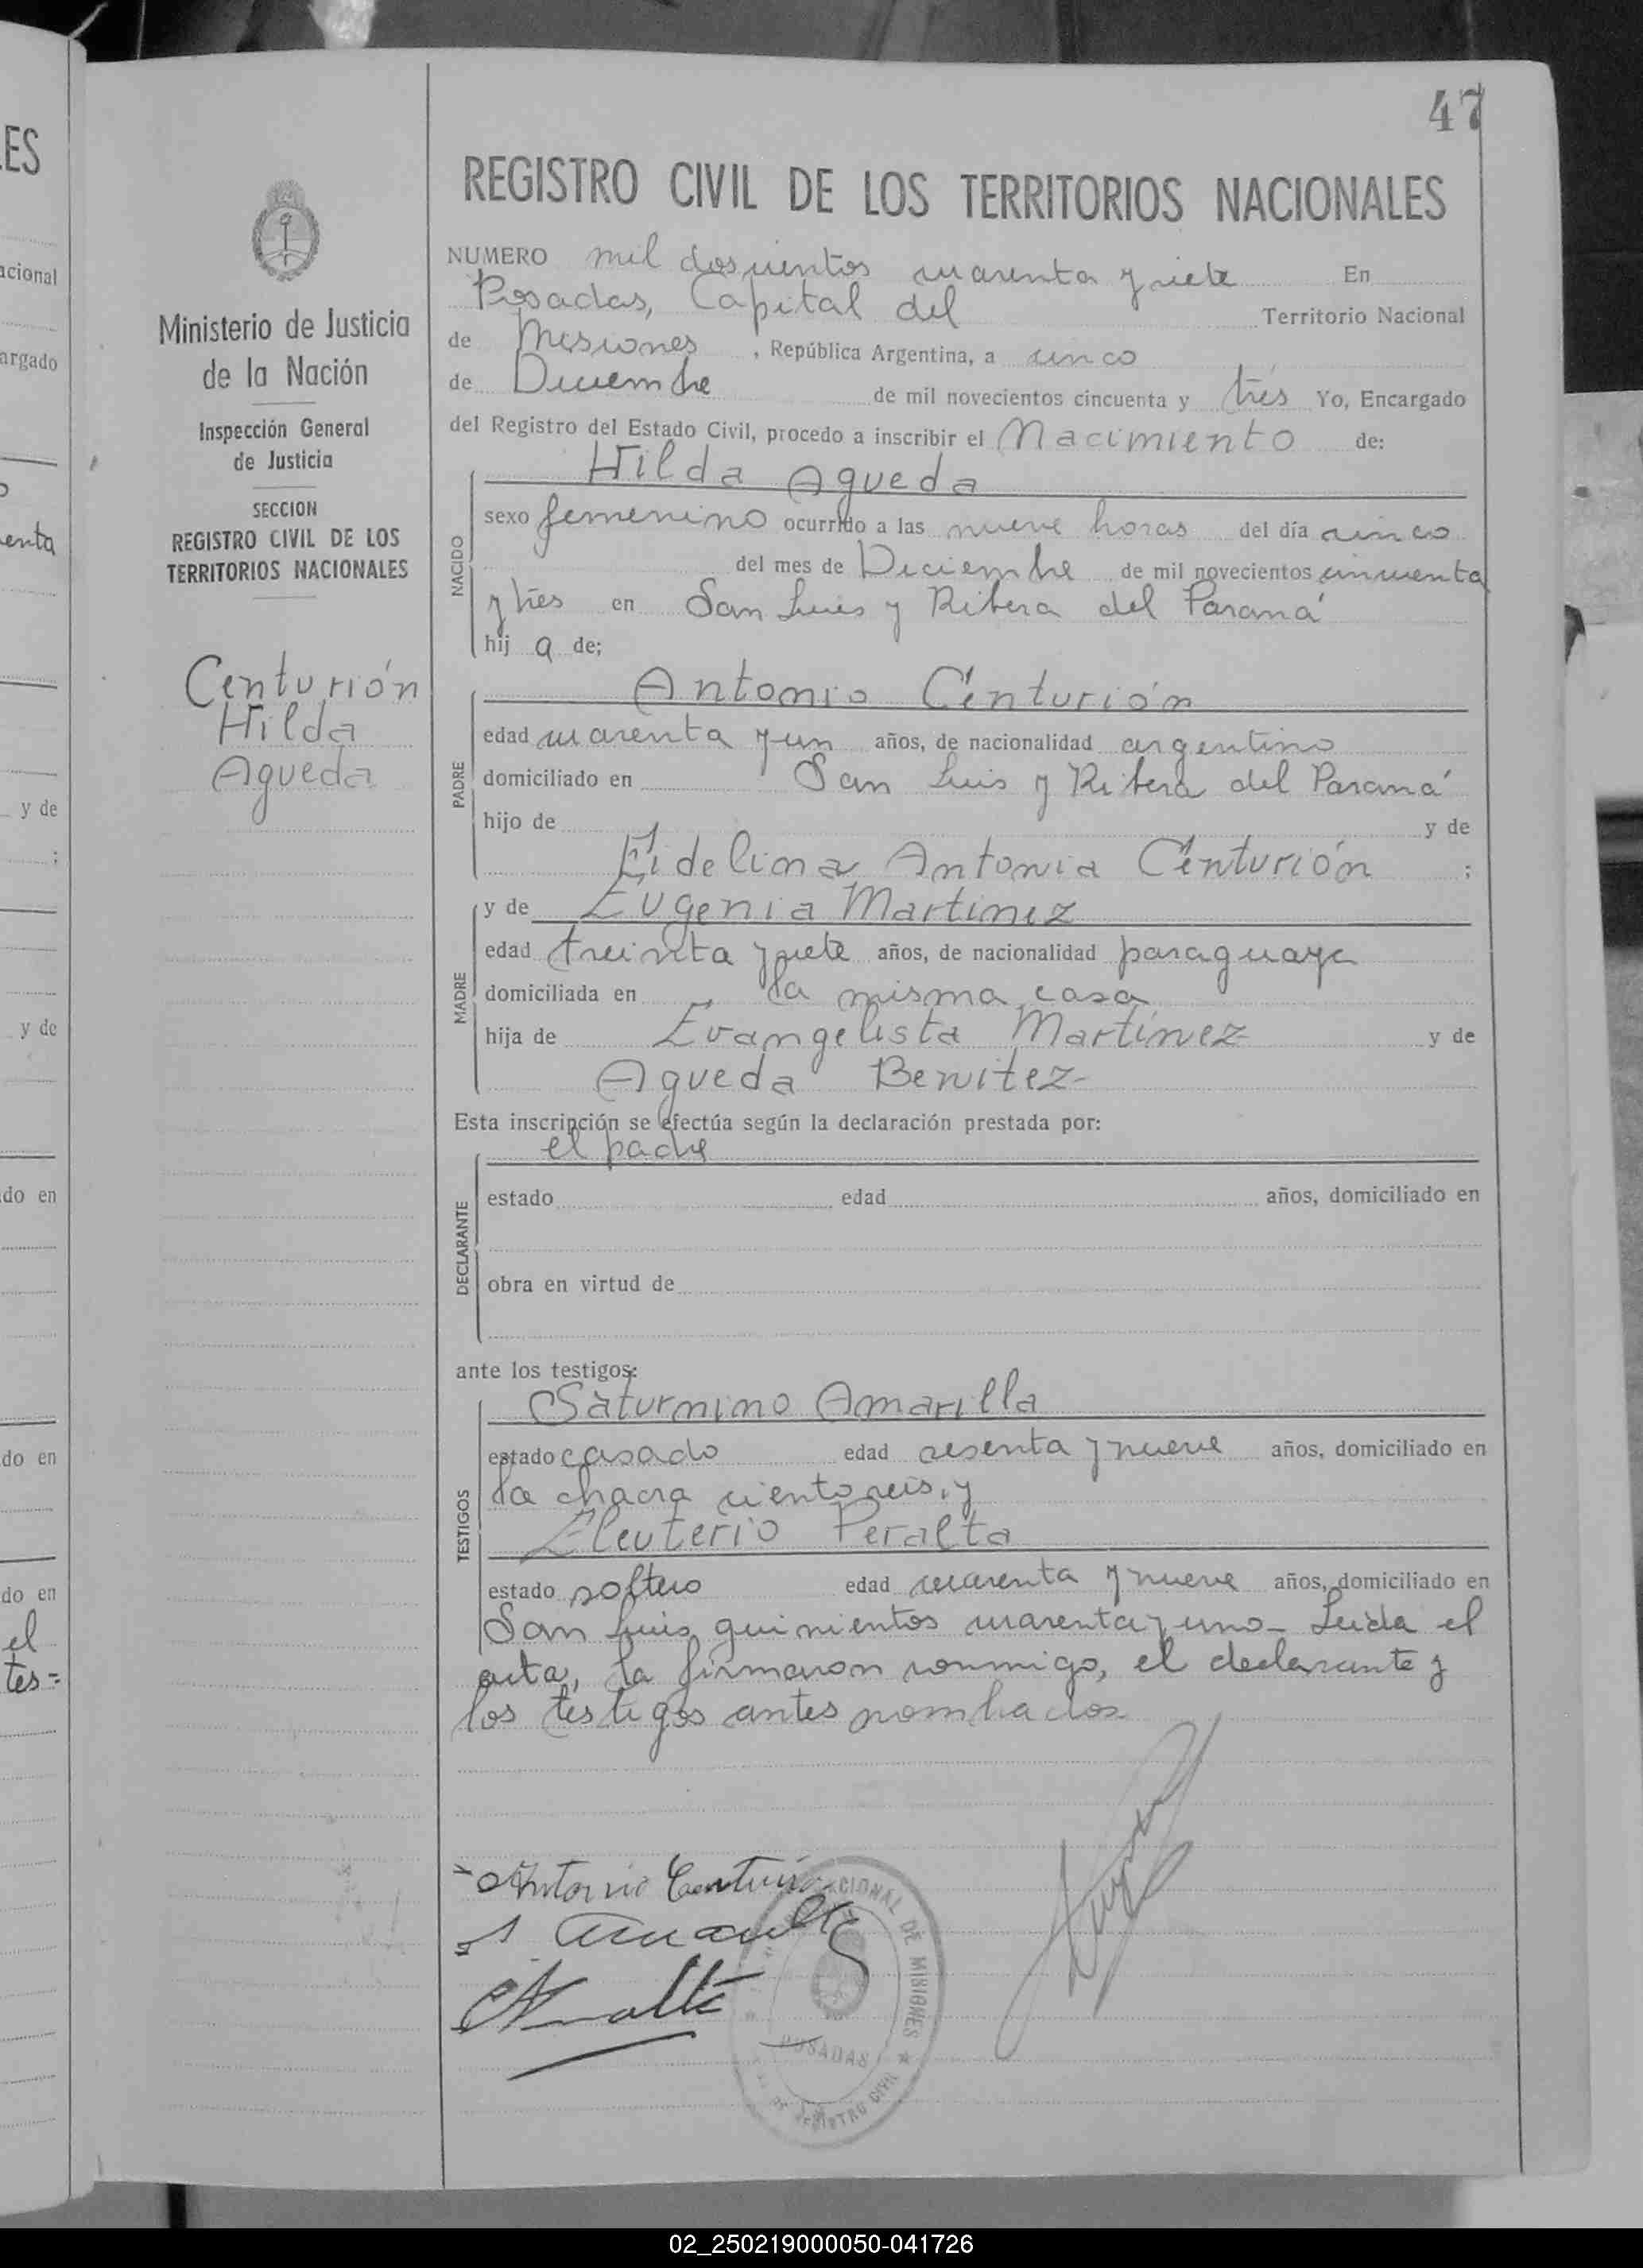 47
REGISTRO CIVIL DE LOS TERRITORIOS NACIONALES
Ministerio de Justicia
de la Nación
Inspección General
de Justicia
SECCION
REGISTRO CIVIL DE LOS
TERRITORIOS NACIONALES
Centurión
Hilda
Agueda
NUMERO mil doscientos cuarenta y siete En
Posadas, Capital del Territorio Nacional
de Misiones, República Argentina, a cinco
de Diciembre de mil novecientos cincuenta y tres Yo, Encargado
del Registro del Estado Civil, procedo a inscribir el Nacimiento de:
Hilda Agueda
NACIDO
sexo femenino ocurrido a las nueve horas del día cinco
del mes de Diciembre de mil novecientos cincuenta
y tres en San Luis y Ribera del Paraná
hij a de;
Antonio Centurión
PADRE
edad cuarenta y un años, de nacionalidad argentino
domiciliado en San Luis y Ribera del Paraná
hijo de y de
Fidelina Antonia Centurión ;
MADRE
y de Eugenia Martinez
edad treinta y siete años, de nacionalidad paraguaya
domiciliada en la misma casa
hija de Evangelista Martínez y de
Agueda Benitez-
Esta inscripción se efectúa según la declaración prestada por:
el padre
DECLARANTE
estado edad años, domiciliado en
obra en virtud de
ante los testigos:
Saturnino Amarilla
TESTIGOS
estado casado edad sesenta y nueve años, domiciliado en
la chacra ciento seis, y
Eleuterio Peralta
estado soltero edad cuarenta y nueve años, domiciliado en
San Luis quinientos cuarenta y uno- Leída el
acta, la firmaron conmigo, el declarante y
los testigos antes nombrados
Antonio Centurion
S Amarilla
POSADAS
02_250219000050-041726